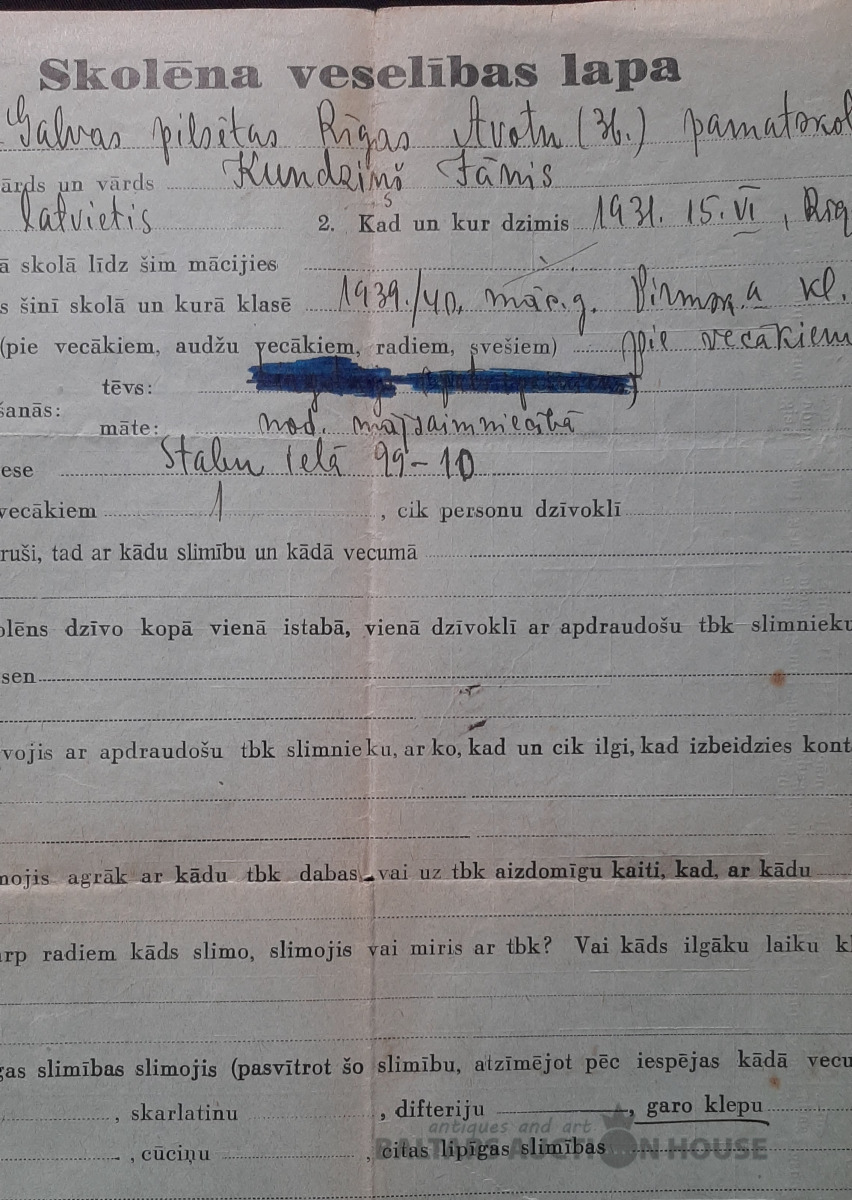 Skolēna veselības lapa
Galvas pilsētas Rīgas Avotu (36.) pamatskol
ārds un vārds Kundziņš Jānis
s
latvietis 2. Kad un kur dzimis 1931. 15. VI, Rīg
ā skolā līdz šim mācijies
s šinī skolā un kurā klasē 1939./40. māc. g. Pirmajā kl.
(pie vecākiem, audžu vecākiem, radiem, svešiem) pie vecākiem
tēvs:
šanās:
māte: nod. mājsaimniecībā
ese Stabu ielā 99-10
vecākiem 1, cik personu dzīvoklī
ruši, tad ar kādu slimību un kādā vecumā
olēns dzīvo kopā vienā istabā, vienā dzīvoklī ar apdraudošu tbk slimnieku
sen
vojis ar apdraudošu tbk slimnieku, ar ko, kad un cik ilgi, kad izbeidzies kont
mojis agrāk ar kādu tbk dabas vai uz tbk aizdomīgu kaiti, kad, ar kādu
arp radiem kāds slimo, slimojis vai miris ar tbk? Vai kāds ilgāku laiku kl
gas slimības slimojis (pasvītrot šo slimību, atzīmējot pēc iespējas kādā vecu
, skarlatinu , difteriju , garo klepu
antiques and art
, cūciņu , citas lipīgas slimības
BALTARS AUCTION HOUSE